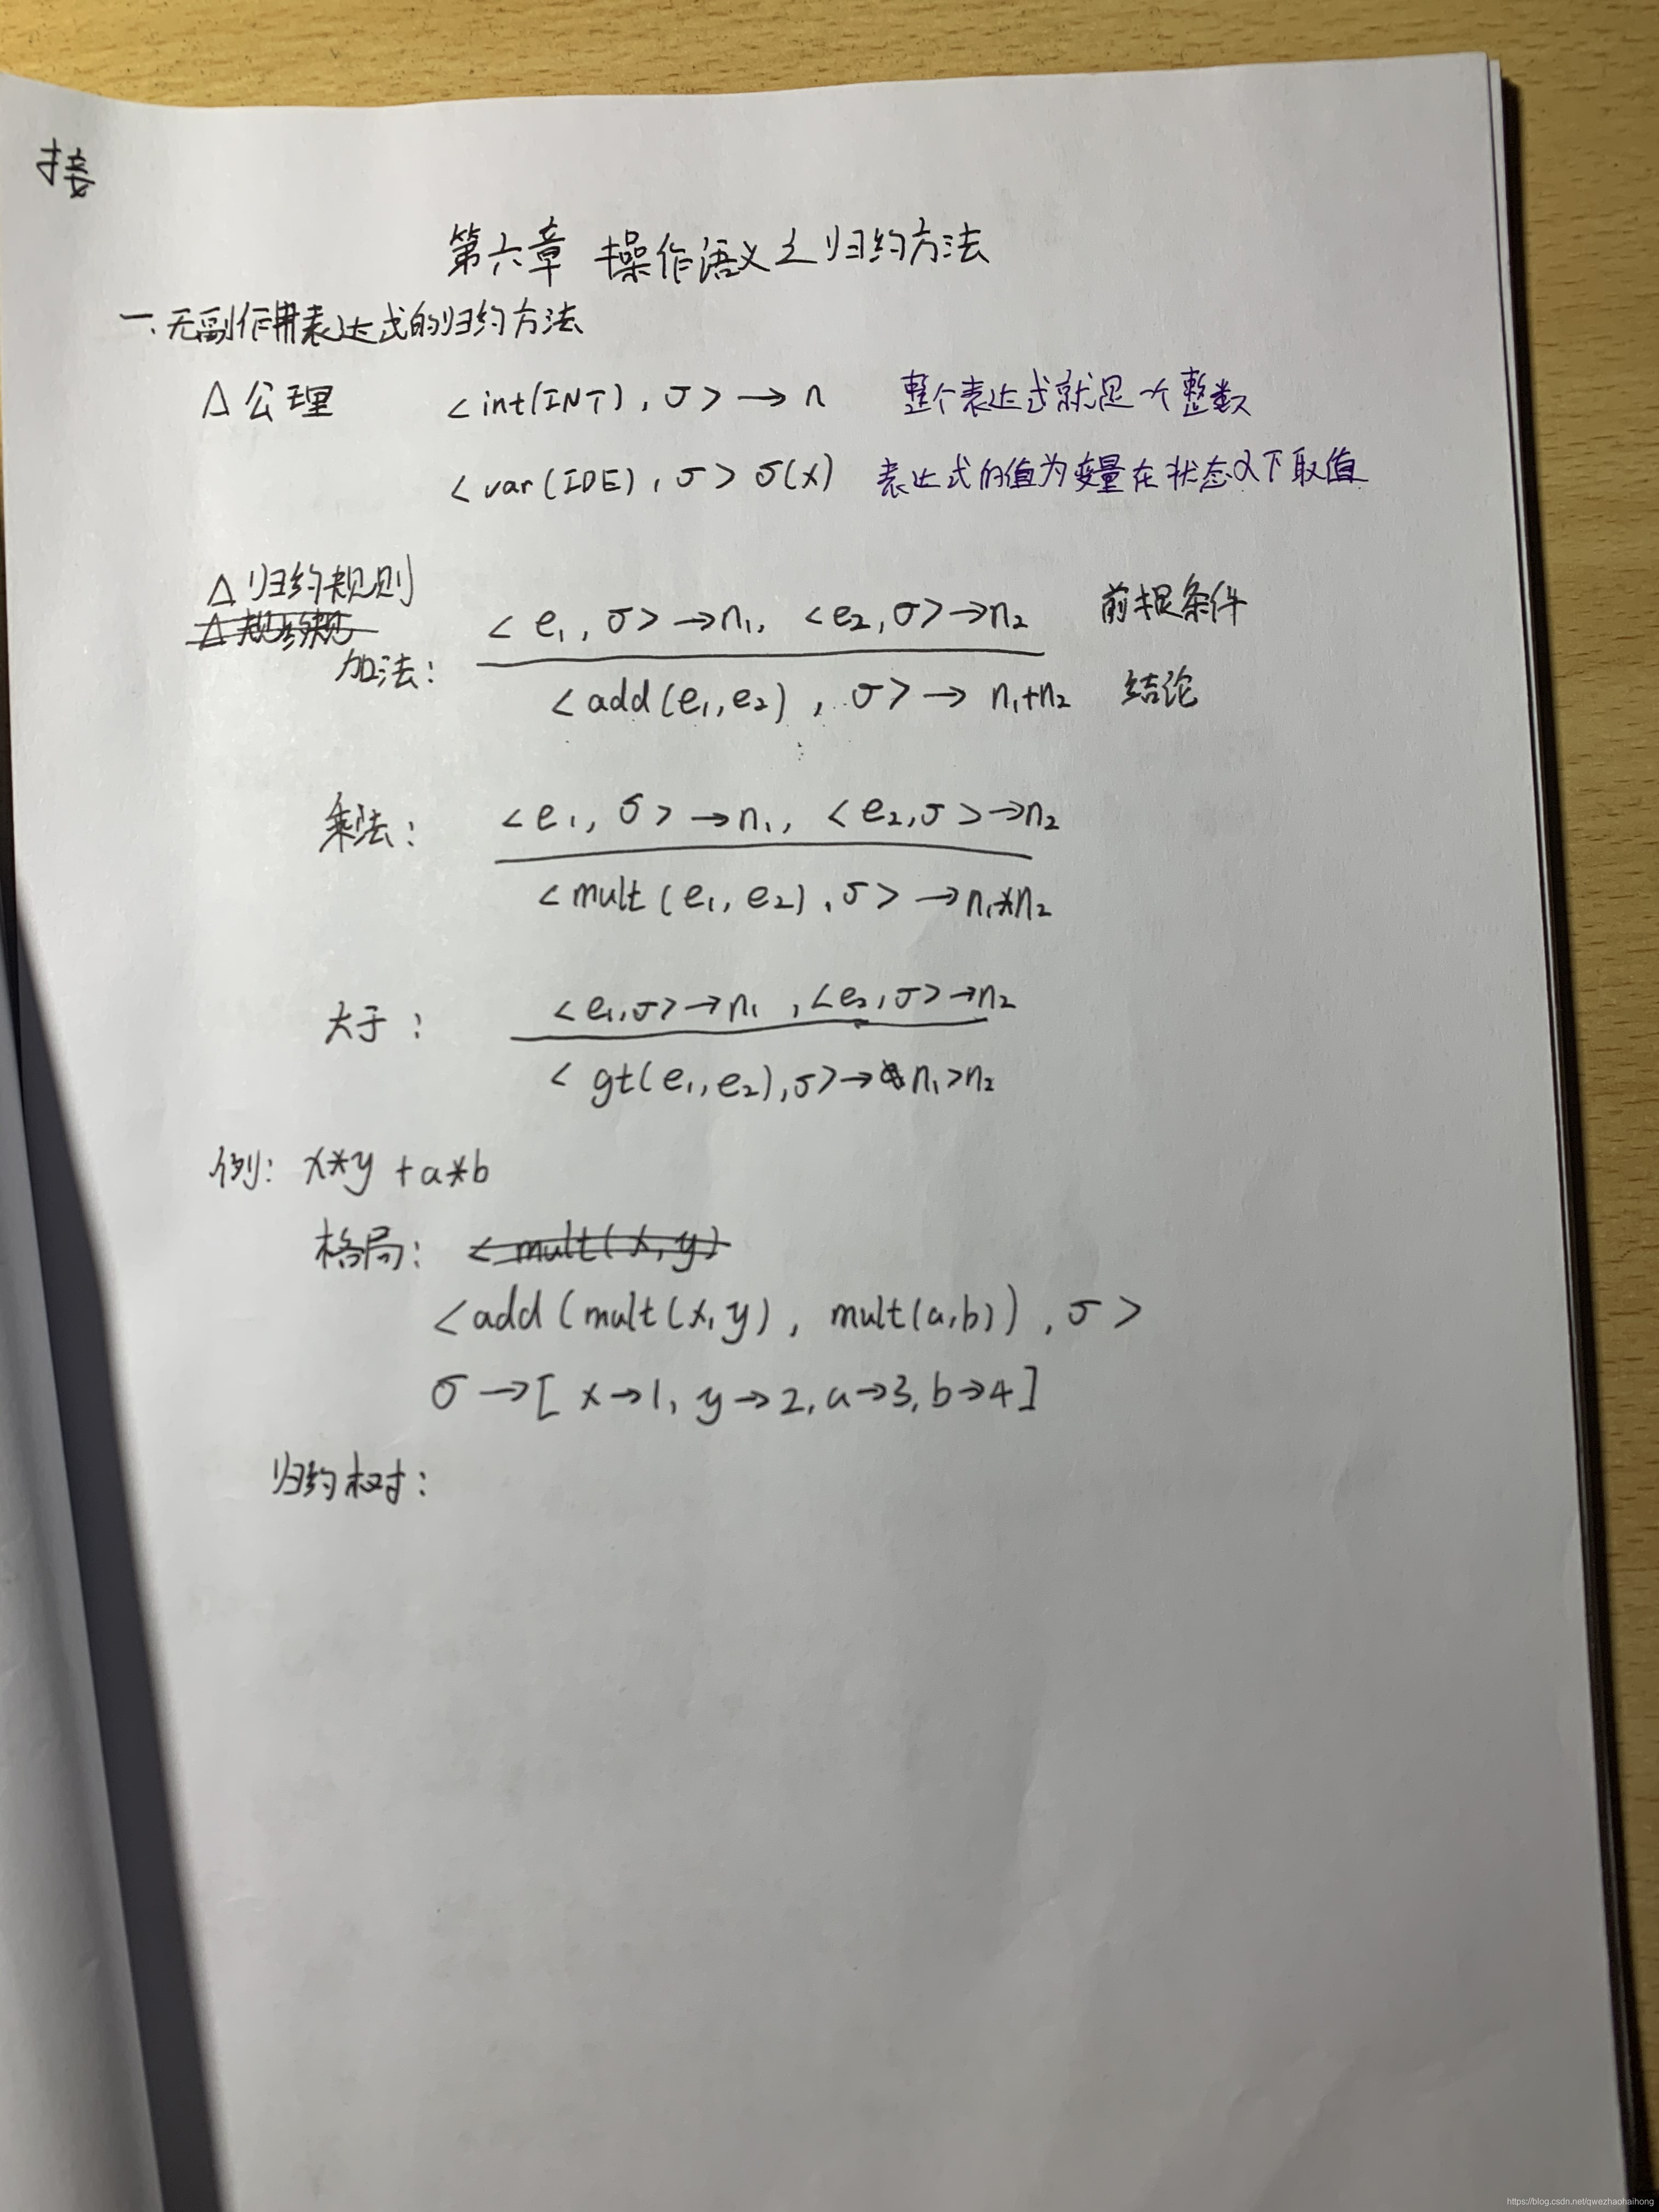 接
第六章 操作语义之归约方法
一、无副作用表达式的归约方法
△ 公理 <int(INT), σ> → n 整个表达式就是一个整数
<var(IDE), σ> σ(x) 表达式的值为变量在状态α下取值
△ 归约规则
<e₁, σ>→n₁, <e₂,σ>→n₂ 前提条件
加法：
<add(e₁,e₂), σ> → n₁+n₂ 结论
<e₁, σ> →n₁, <e₂,σ>→n₂
乘法：
<mult(e₁, e₂), σ> →n₁*n₂
<e₁,σ>→n₁ ,<e₂,σ>→n₂
大于：
<gt(e₁,e₂),σ>→ n₁>n₂
例： x*y + a*b
格局： <mult(x,y)
<add(mult(x,y), mult(a,b)), σ>
σ →[x→1, y→2, a→3, b→4]
归约树：
https://blog.csdn.net/qwezhaohaihong